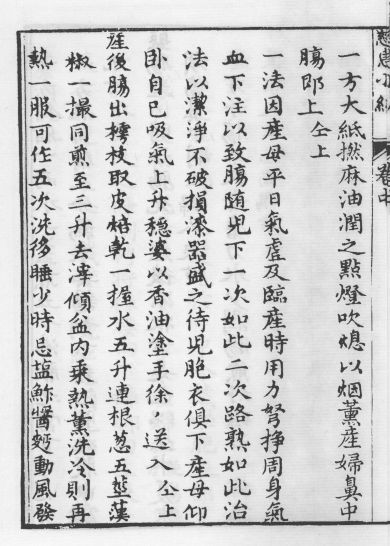 一方大紙撚麻油潤之點燈吹熄以烟薰產婦鼻中
腸即上仝上
一法因產母平日氣虛及臨產時用力努掙周身氣
血下注以致腸随児下一次如此二次路熟如此治
法以潔淨不破損漆器盛之待児胞衣俱下產母仰
卧自己吸氣上升穏婆以香油塗手徐〻送入仝上
產後腸出樗枝取皮焙乾一握水五升連根葱五莖漢
椒一撮同煎至三升去滓傾盆内乗熱薰洗冷則再
熱一服可作五次洗後睡少時忌塩鮓醬麪動風發